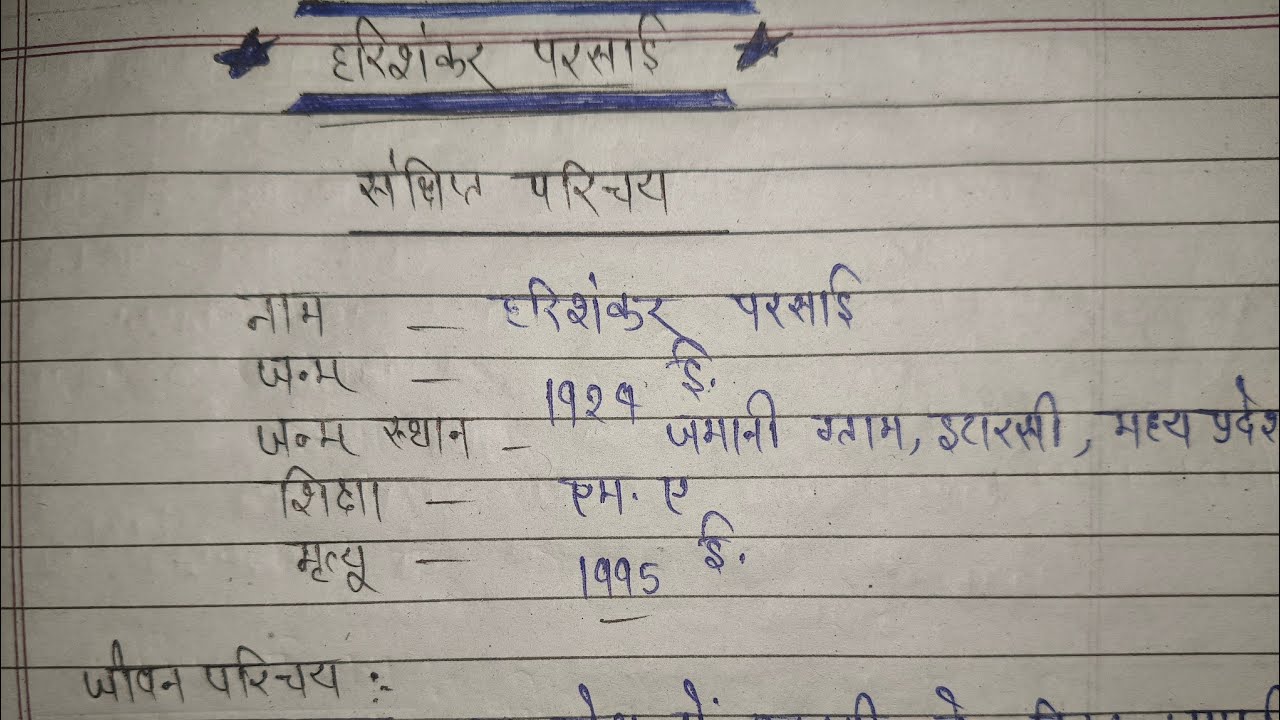 हरिशंकर परसाई
संक्षिप्त परिचय
नाम — हरिशंकर परसाई
जन्म — 1929 ई.
जन्म स्थान — जमानी ग्राम, इटारसी, मध्य प्रदेश
शिक्षा — एम. ए
मृत्यू — 1995 ई.
जीवन परिचय :-